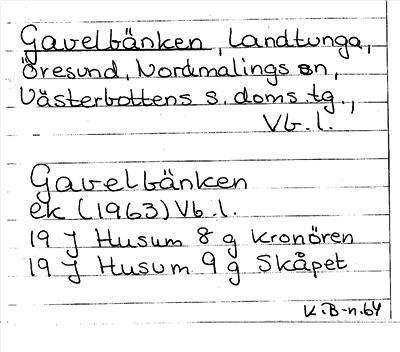 Gavelbänken, Landtunga,
Öresund, Nordmalings sn,
Västerbottens s. doms.tg.,
Vb.l.
Gavelbänken
ek (1963) Vb.l.
19 J Husum 8 g Kronören
19 J Husum 9 g Skåpet
K.B-n.64